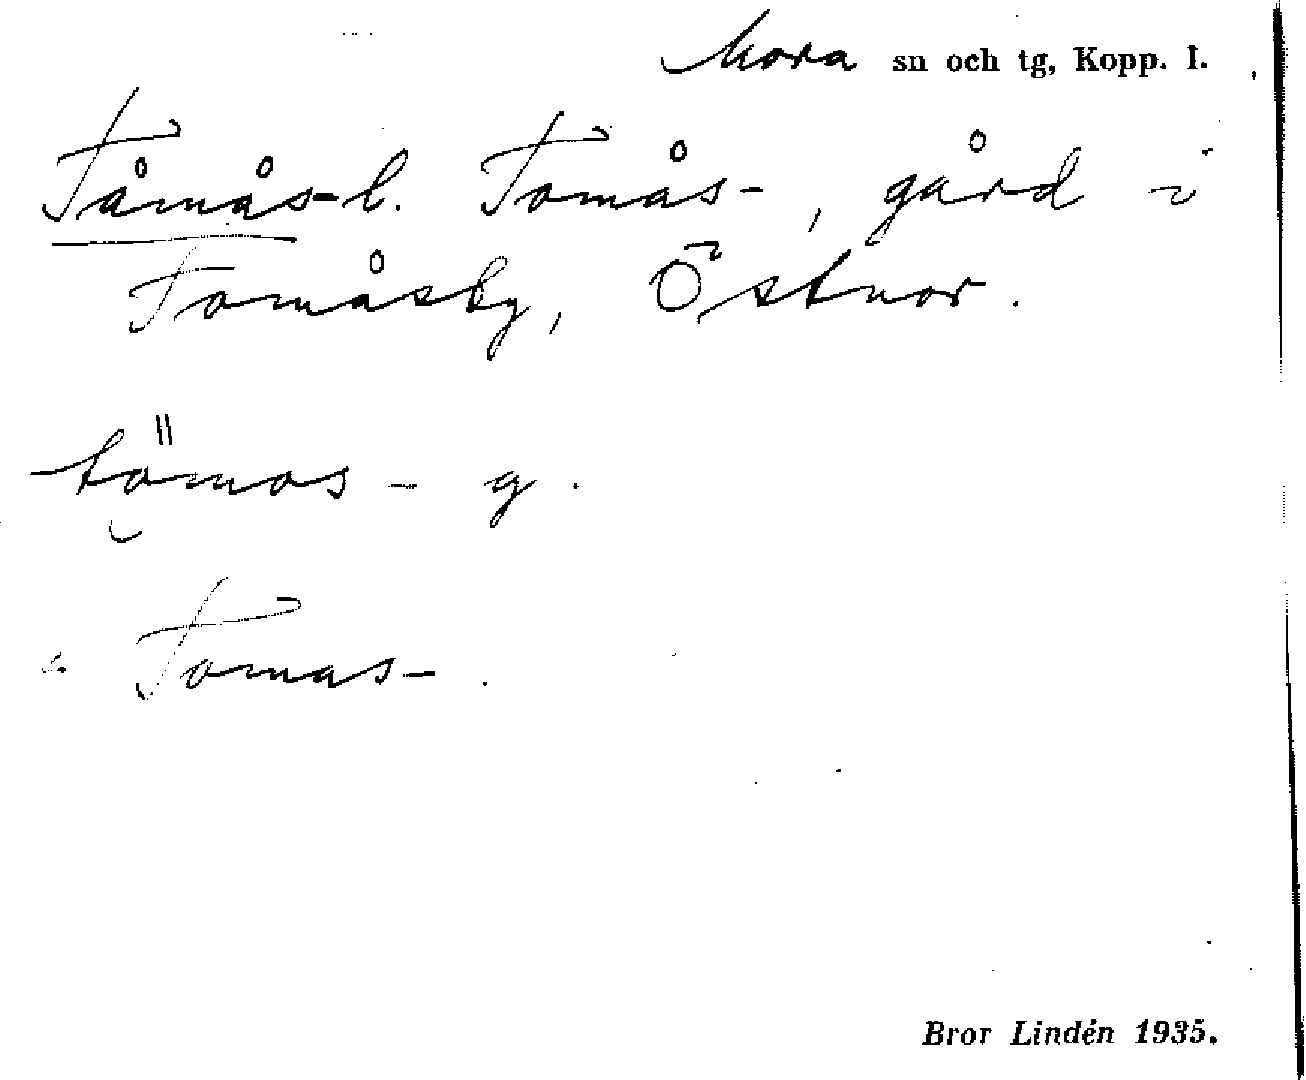 Mora sn och tg, Kopp. l.
Tåmås- l. Tomås-, gård i
Tomåsby, Östnor.
tömos- g.
Tomas-.
Bror Lindén 1935.